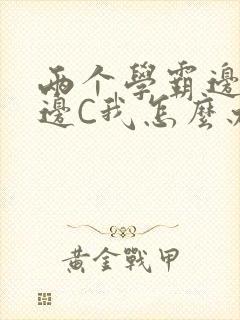 兩个學霸邊
邊C我怎麼
黃金戰甲